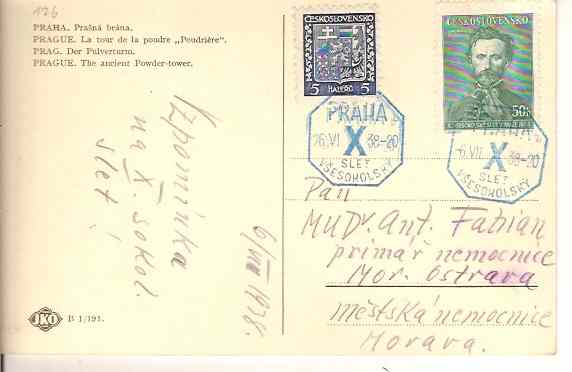 126
PRAHA. Prašná brána.
PRAGUE. La tour de la poudre „Poudrière".
PRAG. Der Pulverturm.
PRAGUE. The ancient Powder-tower.
Vzpomínka
na X. sokol.
slet!
6/VII 1938.
JKO B 1/191.
ČESKOSLOVENSKO
5 5
HALÉŘŮ
ČESKOSLOVENSKO
50h
PRAHA
X
38-20
SLET
VŠESOKOLSKÝ
PRAHA
6.VII X 38-20
SLET
VŠESOKOLSKÝ
Pan
MUDr. Ant. Fabian
primář nemocnice
Mor. Ostrava
městská nemocnice
Morava.